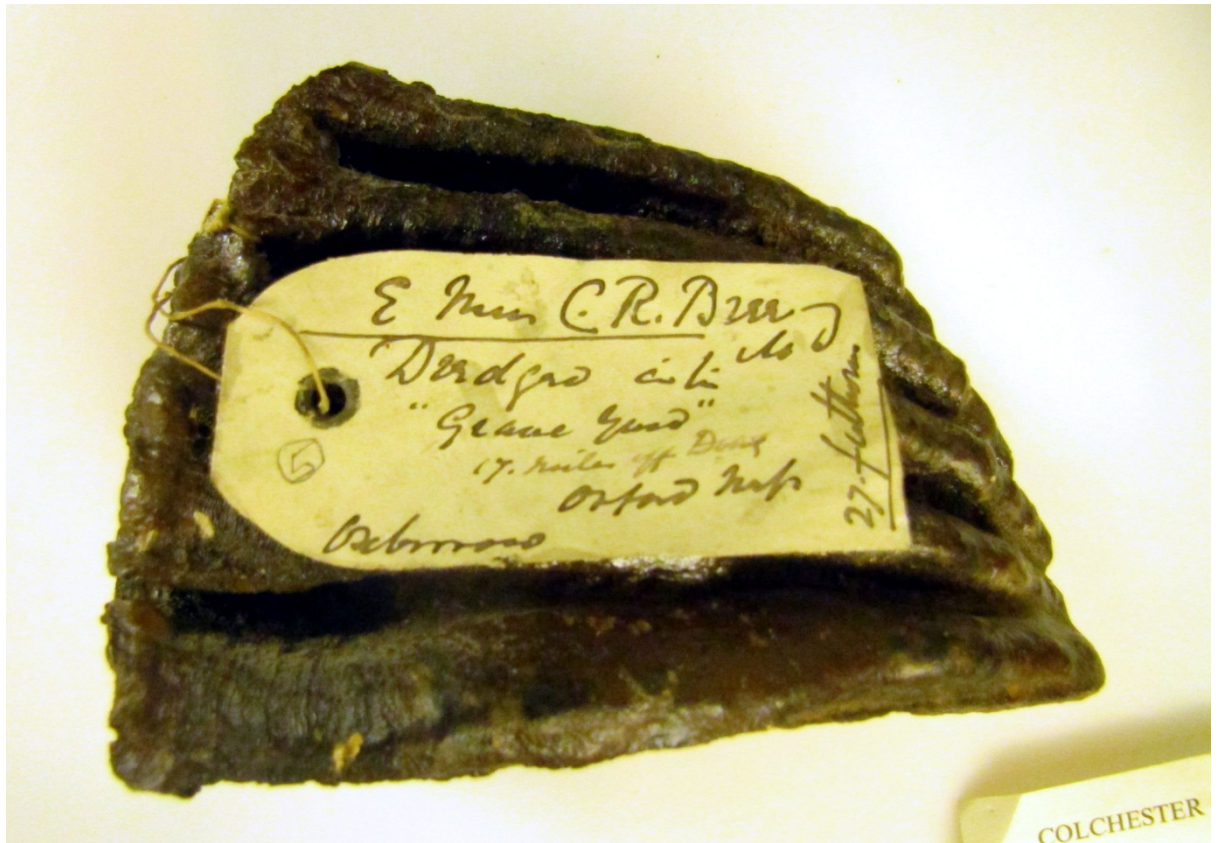 E Mus C. R. Bree
M D
Dredged in the
"Grave Yard"
17. miles off
Orford Ness
27 fathoms
5
COLCHESTER